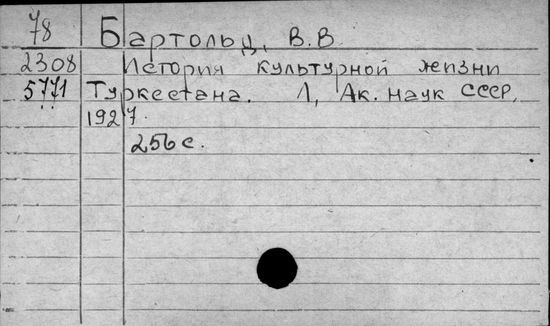 78 Бартольд, В.В.
2308 История культурной жизни
5771 Туркестана. Л, Ак. наук СССР,
1927.
256 с.